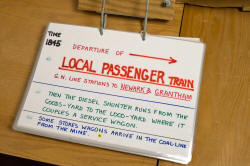 TIME
1845
DEPARTURE OF
LOCAL PASSENGER TRAIN
G.N. LINE STATIONS TO NEWARK & GRANTHAM
THEN THE DIESEL SHUNTER RUNS FROM THE
GOODS-YARD TO THE LOCO-YARD WHERE IT
COUPLES A SERVICE WAGON.
SOME STORES WAGONS ARRIVE IN THE COAL-LINE
FROM THE MINE.